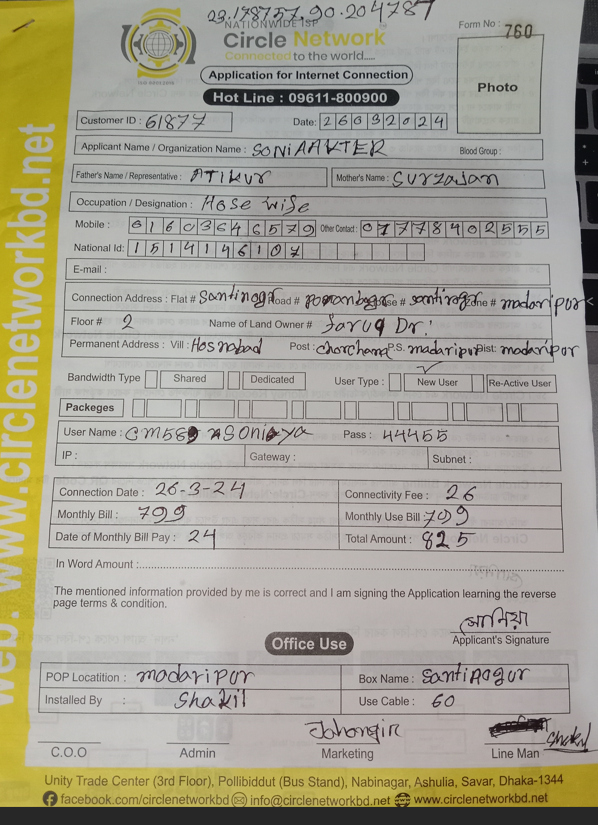 23.178757,90.204787
NATIONWIDE ISP
Form No : 760
Circle Network
Connected to the world.....
Application for Internet Connection
Photo
Hot Line : 09611-800900
Customer ID : 61877
Date: 26032024
Applicant Name / Organization Name : SONIAAKTER
Blood Group :
Father's Name / Representative : ATIKUr
Mother's Name : Surzajan
Occupation / Designation : Hose wife
Mobile : 01603646579 Other Contact : 01778402555
National Id: 1514146107
E-mail :
Connection Address : Flat # Santinagr Road # House # santinagr Zone # madaripur
Floor # 2 Name of Land Owner # faruq Dr!
Permanent Address : Vill : Hosnabad Post : chorchand P.S. madaripur Dist: madaripur
Bandwidth Type Shared Dedicated User Type : New User Re-Active User
Packeges
User Name : Pass : 44455
IP : Gateway : Subnet :
Connection Date : 26-3-24 Connectivity Fee : 26
Monthly Bill : 799 Monthly Use Bill : 799
Date of Monthly Bill Pay : 24 Total Amount : 825
In Word Amount :
The mentioned information provided by me is correct and I am signing the Application learning the reverse
page terms & condition.
সোনিয়া
Applicant's Signature
Office Use
POP Locatition : madaripur Box Name : Santinagur
Installed By : Shakil Use Cable : 60
Jahangir
Shakil
C.O.O Admin Marketing Line Man
Unity Trade Center (3rd Floor), Pollibiddut (Bus Stand), Nabinagar, Ashulia, Savar, Dhaka-1344
facebook.com/circlenetworkbd info@circlenetworkbd.net www.circlenetworkbd.net
web: www.circlenetworkbd.net